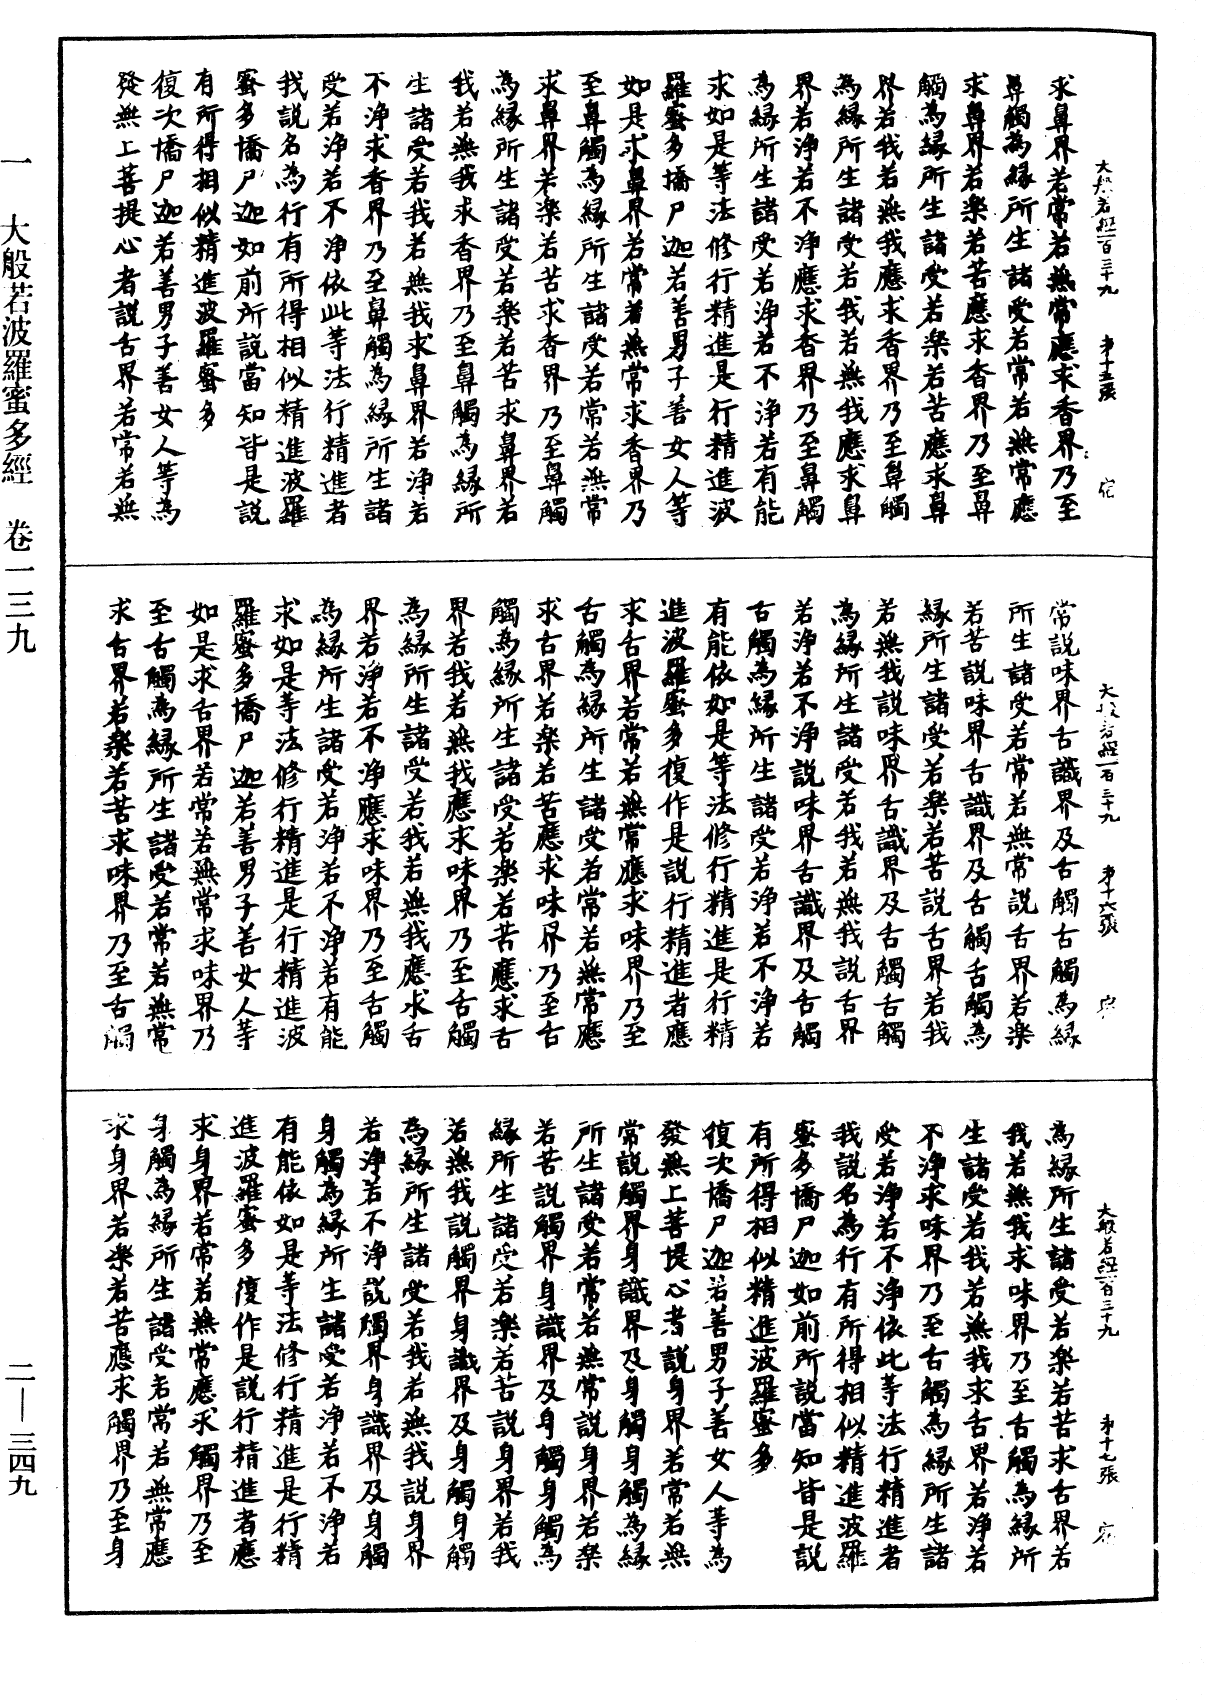 大般若經一百三十九 第十五張 宿
求鼻界若常若無常應求香界乃至
鼻觸為緣所生諸受若常若無常應
求鼻界若樂若苦應求香界乃至鼻
觸為緣所生諸受若樂若苦應求鼻
界若我若無我應求香界乃至鼻觸
為緣所生諸受若我若無我應求鼻
界若淨若不淨應求香界乃至鼻觸
為緣所生諸受若淨若不淨若有能
求如是等法修行精進是行精進波
羅蜜多憍尸迦若善男子善女人等
如是求鼻界若常若無常求香界乃
至鼻觸為緣所生諸受若常若無常
求鼻界若樂若苦求香界乃至鼻觸
為緣所生諸受若樂若苦求鼻界若
我若無我求香界乃至鼻觸為緣所
生諸受若我若無我求鼻界若淨若
不淨求香界乃至鼻觸為緣所生諸
受若淨若不淨依此等法行精進者
我說名為行有所得相似精進波羅
蜜多憍尸迦如前所說當知皆是說
有所得相似精進波羅蜜多
復次憍尸迦若善男子善女人等為
發無上菩提心者說舌界若常若無
大般若經一百三十九 第十六張 宿
常說味界舌識界及舌觸舌觸為緣
所生諸受若常若無常說舌界若樂
若苦說味界舌識界及舌觸舌觸為
緣所生諸受若樂若苦說舌界若我
若無我說味界舌識界及舌觸舌觸
為緣所生諸受若我若無我說舌界
若淨若不淨說味界舌識界及舌觸
舌觸為緣所生諸受若淨若不淨若
有能依如是等法修行精進是行精
進波羅蜜多復作是說行精進者應
求舌界若常若無常應求味界乃至
舌觸為緣所生諸受若常若無常應
求舌界若樂若苦應求味界乃至舌
觸為緣所生諸受若樂若苦應求舌
界若我若無我應求味界乃至舌觸
為緣所生諸受若我若無我應求舌
界若淨若不淨應求味界乃至舌觸
為緣所生諸受若淨若不淨若有能
求如是等法修行精進是行精進波
羅蜜多憍尸迦若善男子善女人等
如是求舌界若常若無常求味界乃
至舌觸為緣所生諸受若常若無常
求舌界若樂若苦求味界乃至舌觸
大般若經一百三十九 第十七張 宿
為緣所生諸受若樂若苦求舌界若
我若無我求味界乃至舌觸為緣所
生諸受若我若無我求舌界若淨若
不淨求味界乃至舌觸為緣所生諸
受若淨若不淨依此等法行精進者
我說名為行有所得相似精進波羅
蜜多憍尸迦如前所說當知皆是說
有所得相似精進波羅蜜多
復次憍尸迦若善男子善女人等為
發無上菩提心者說身界若常若無
常說觸界身識界及身觸身觸為緣
所生諸受若常若無常說身界若樂
若苦說觸界身識界及身觸身觸為
緣所生諸受若樂若苦說身界若我
若無我說觸界身識界及身觸身觸
為緣所生諸受若我若無我說身界
若淨若不淨說觸界身識界及身觸
身觸為緣所生諸受若淨若不淨若
有能依如是等法修行精進是行精
進波羅蜜多復作是說行精進者應
求身界若常若無常應求觸界乃至
身觸為緣所生諸受若常若無常應
求身界若樂若苦應求觸界乃至身
一 大般若波羅蜜多經 卷一三九 二—三四九